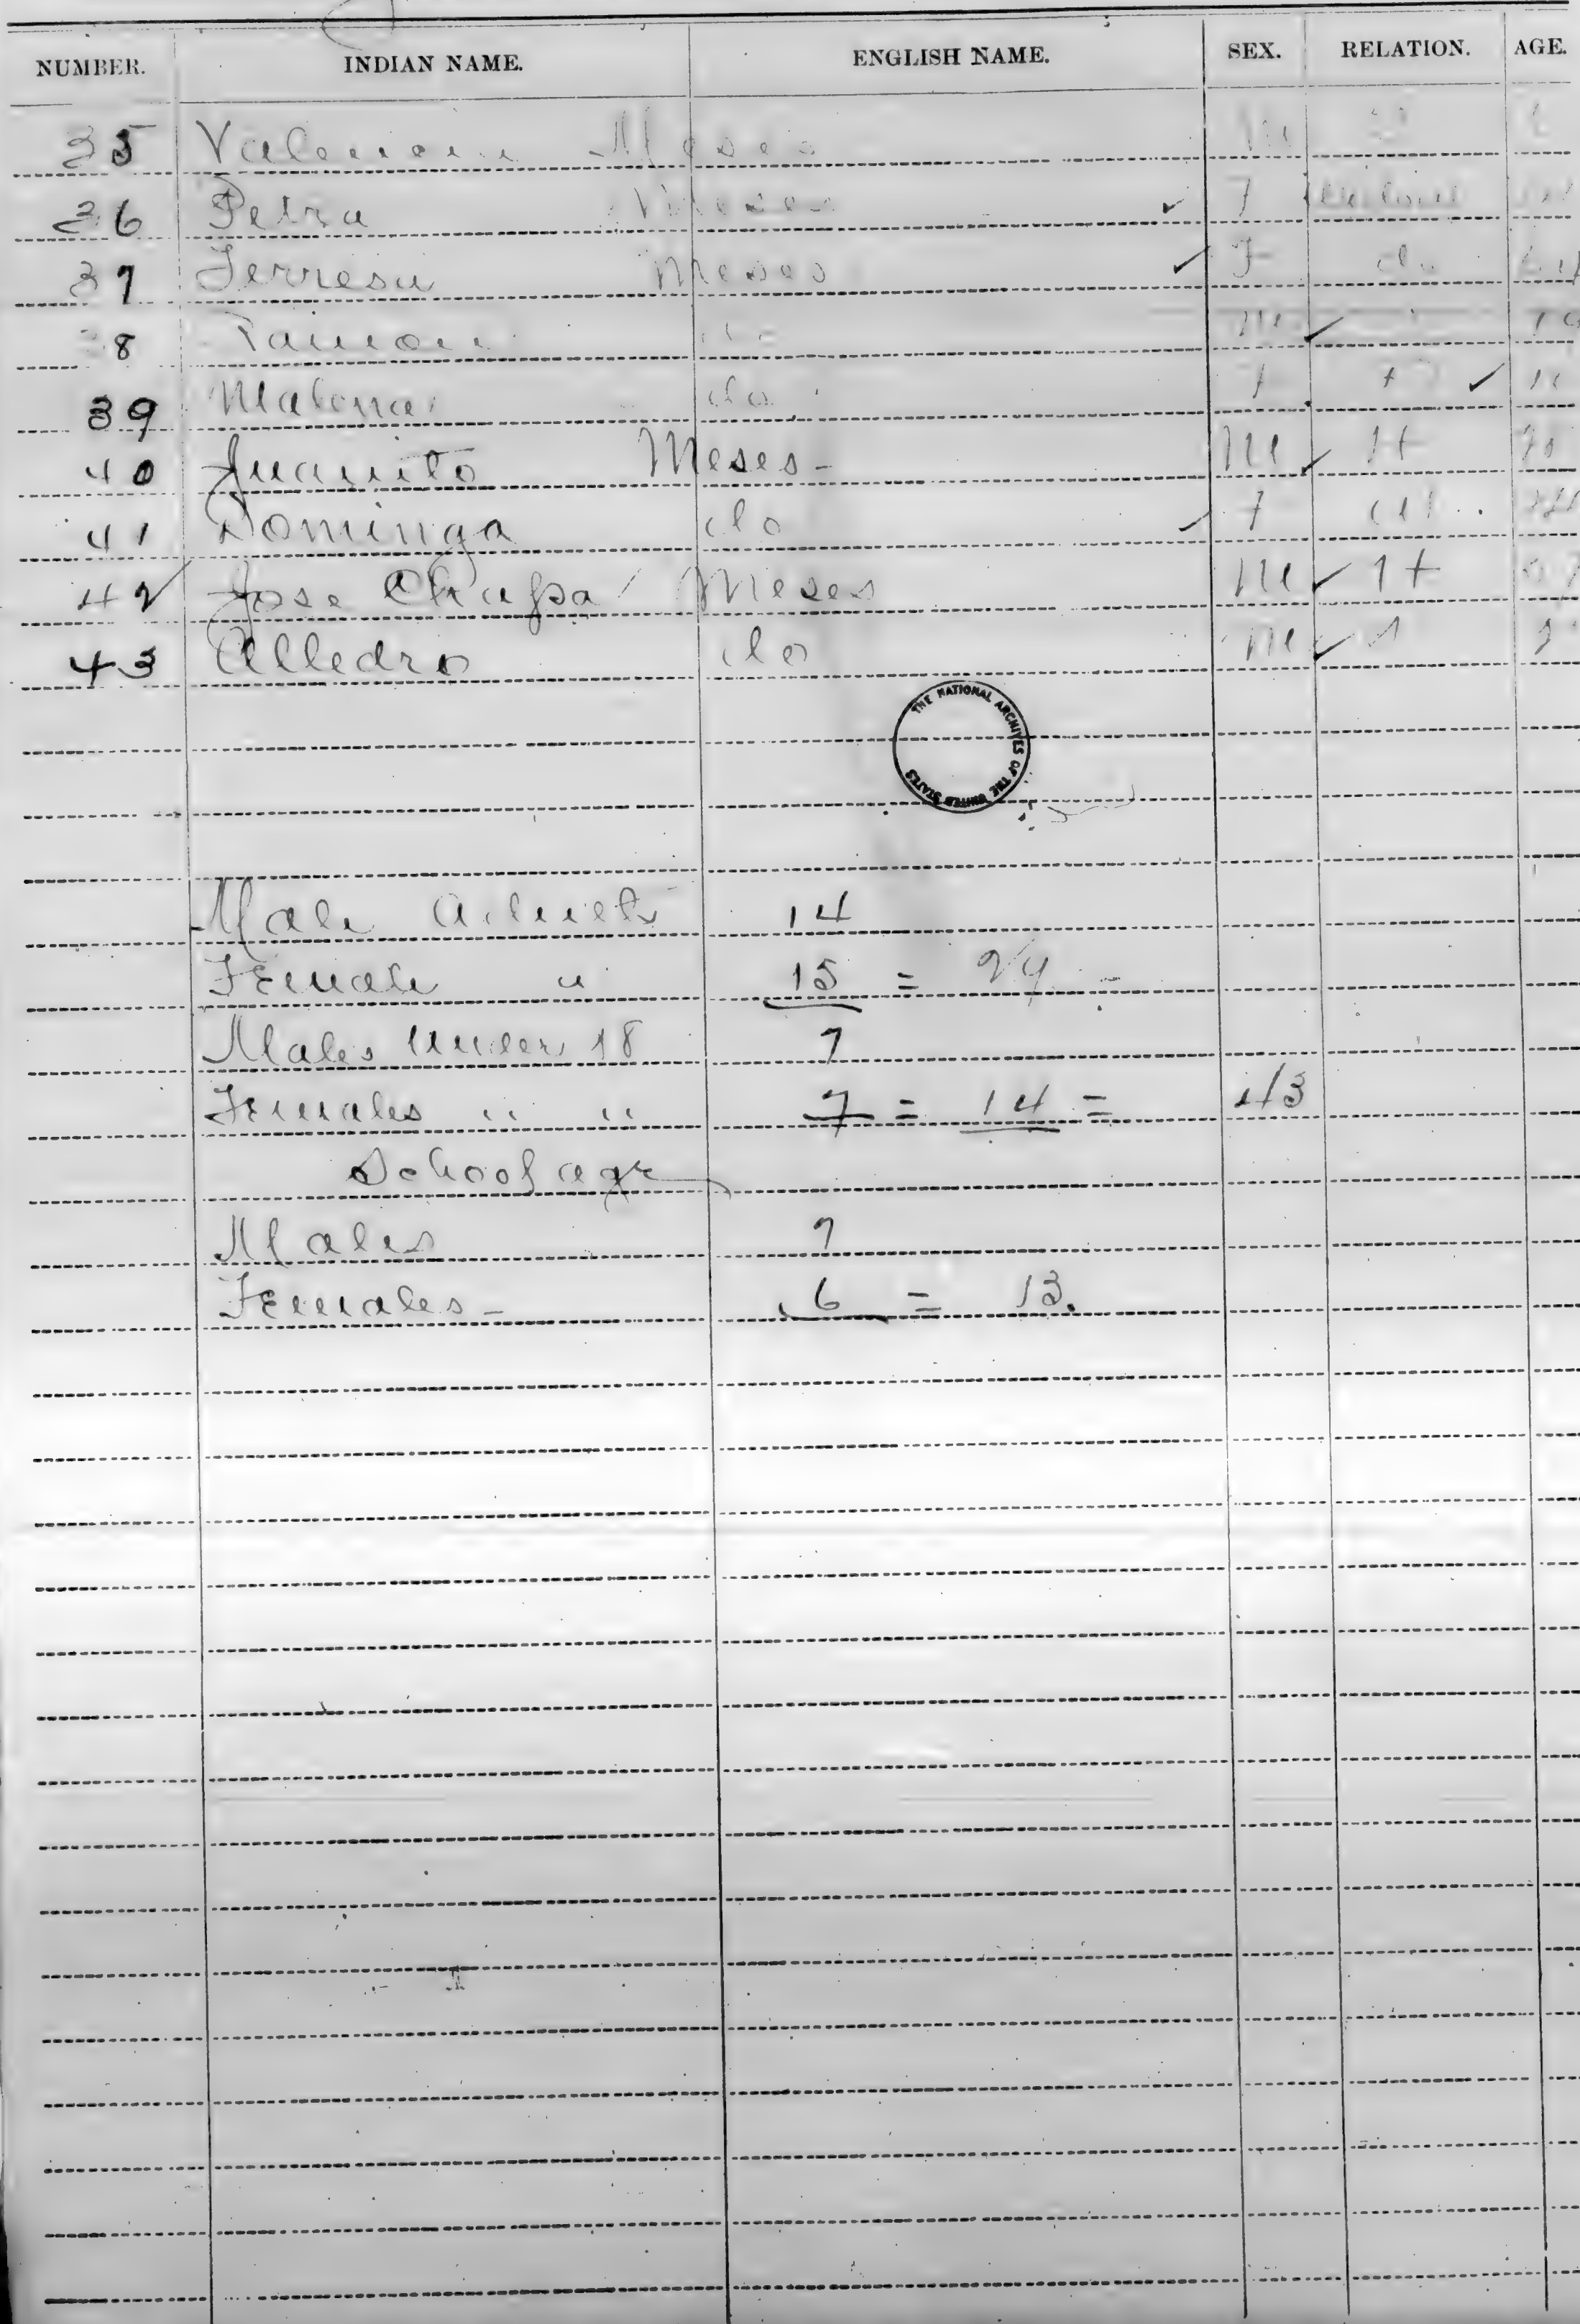 NUMBER. INDIAN NAME. ENGLISH NAME. SEX. RELATION. AGE.
35 Meses M
36 Petra Meses F
37 Terresa Meses F do
38 Ramon do M
39 do F
40 Juanito Meses - M H
41 Dominga do F
42 Jose Chapa Meses M H
43 do M
THE NATIONAL ARCHIVES OF THE UNITED STATES
Male Adults 14
Female " 15 = 29 -
Males Under 18 7
Females " " 7 = 14 = 43
School age
Males 7
Females - 6 = 13.